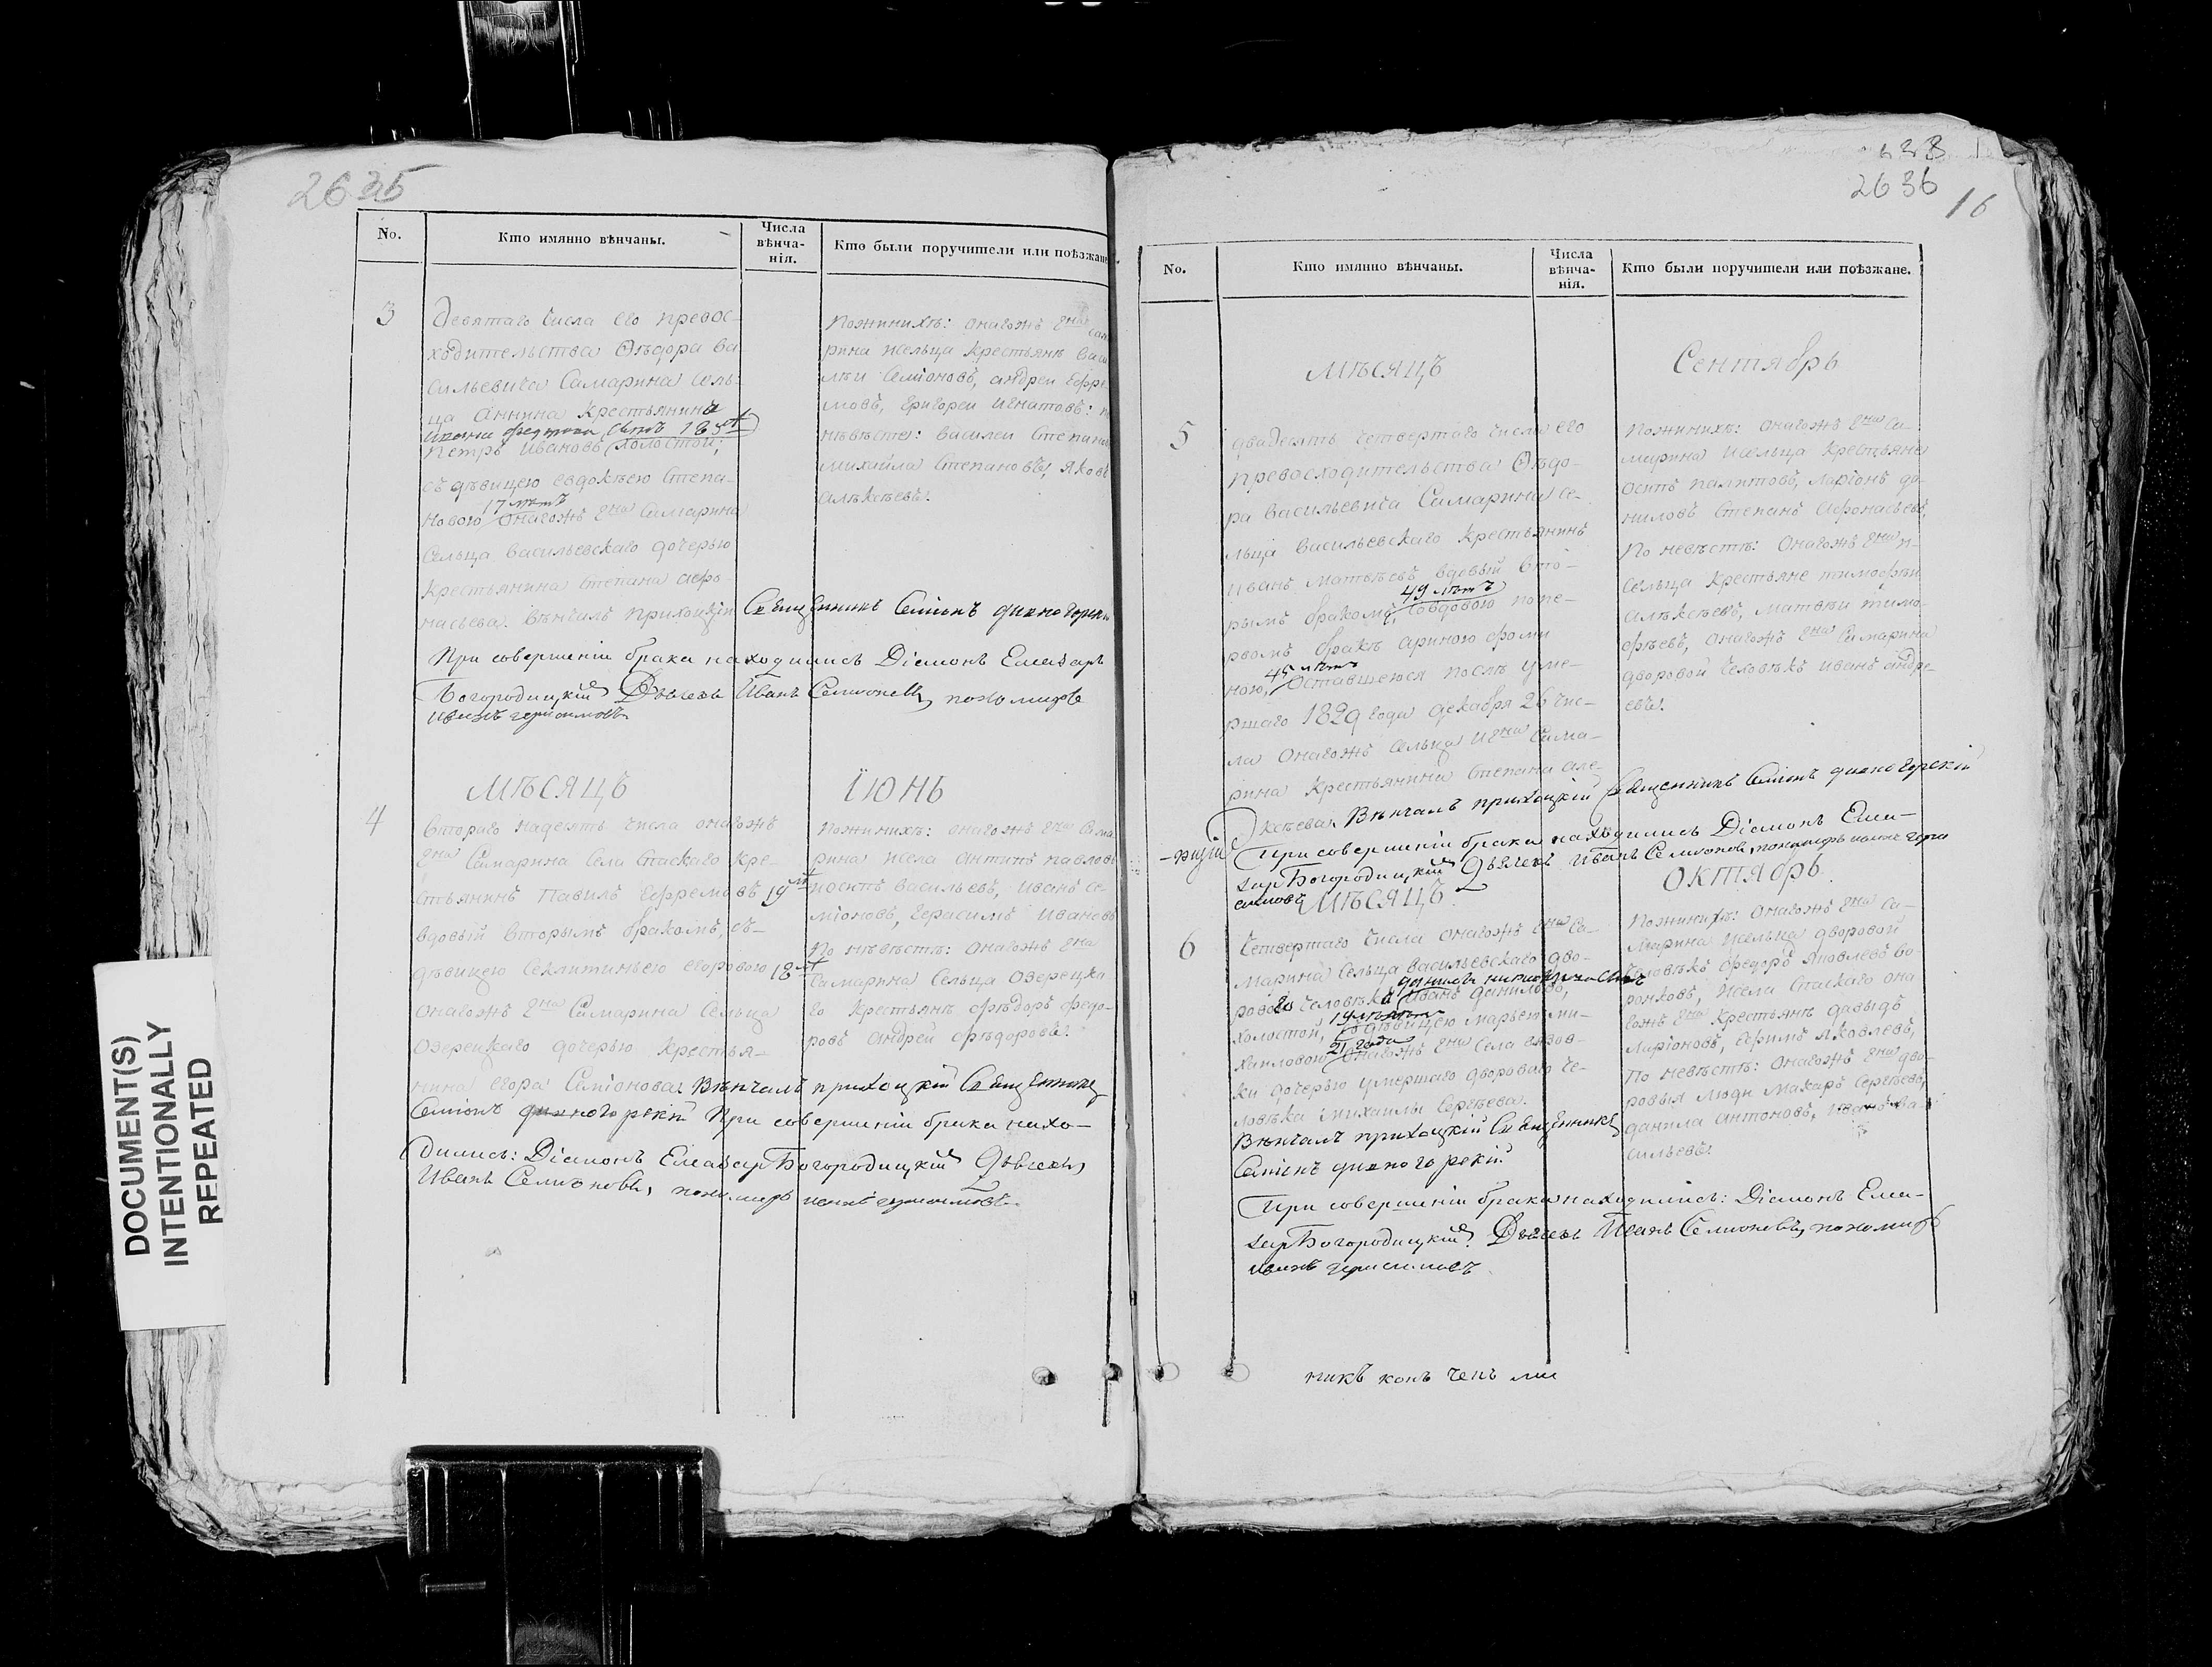 DOCUMENT(S)
INTENTIONALLY
REPEATED
2635
No.
Кто имянно вѣнчаны.
Числа
вѣнча-
нія.
Кто были поручители или поѣзжане
3
Девятаго числа его превос-
ходительства Ѳѣдора ва
сильевича Самарина сель-
ца Аннина крестьянинъ
сынъ 18
Петръ Ивановъ холостой,
съ дѣвицею евдокѣею степа-
17 лѣтъ
новою онагожъ гна Самарина
Сельца васильевскаго дочерью
крестьянина Степана афо-
насьева. Вѣнчалъ прихоцкіи Священникъ Симіонъ
При совершеніи брака находились Діаконъ Елеазаръ
Богородицкій Дьячекъ Иванъ Семионовъ, пономарь
иванъ герасимовъ
Пожинихѣ: онагожъ гна сам
рина исельца крестьянѣ васи
лѣи Семіоновъ, андреи Ефре
мовъ, Григореи Игнатовъ: п
нѣвѣсте: василеи Степан
михаила Степановъ, Яковъ
алѣксѣевъ.
МѢСЯЦЪ ІЮНЬ
4
Втораго надесять числа онагожъ
гна Самарина Села Спаскаго кре-
стьянинъ Павилъ Ефремовъ 19 лѣ
вдовый вторымъ бракомъ, съ-
дѣвицею Секлитиньею егоровою 18 лѣ
онагожъ гна Самарина Сельца
Озерецкаго дочерью крестья-
нина Егора Симіонова. Вѣнчалъ прихоцкій Священникъ
Симіонъ При совершеніи брака нахо-
дились: Діаконъ Елеазаръ Богородицкій Дьячекъ
Иванъ Семионовъ, пономарь иванъ герасимовъ
Пожинихѣ: онагожъ гна Сама
рина исела Антипъ павловъ
иосипъ васильевъ, иванъ се-
міоновъ, герасимъ ивановъ
По нѣвѣстѣ: онагожъ гна
Самарина Сельца Озерецка
го крестьянѣ фѣдоръ федо-
ровъ андрей фѣдоровъ.
2636
16
No.
Кто имянно вѣнчаны.
Числа
вѣнча-
нія.
Кто были поручители или поѣзжане.
МѢСЯЦЪ Сентябрь
5
двадесять четвертаго числа его
превосходительства Ѳѣдо-
ра васильевича Самарина се-
льца васильевскаго крестьянинъ
иванъ матвѣевъ вдовый вто-
49 лѣтъ
рымъ бракомъ, совдовою попе-
рвомъ бракѣ ариною фоми
45 лѣтъ
ною, оставшеюся послѣ уме-
ршаго 1829 года декабря 26 чис-
ла онагожъ сельца игна Сама-
рина крестьянина Степана але-
ксѣева. Вѣнчалъ прихоцкій Священникъ Симіонъ
При совершеніи брака находились Діаконъ Елеа-
заръ Богородицкій Дьячекъ Иванъ Семионовъ, пономарь иванъ гера
симовъ
Пожинихѣ: онагожъ гна Са-
марина исельца крестьяне
Осипъ Ларіонъ да-
ниловъ Степанъ Афонасьевъ,
По невѣстѣ: Онагожъ гна и-
сельца крестьяне тимофѣи
алѣксѣевъ, матвѣи тимо-
фѣевъ, онагожъ гна Самарина
дворовой человѣкъ иванъ андре-
евъ.
МѢСЯЦЪ ОКТЯбрь
6
Четвертаго числа онагожъ гна Са-
марина Сельца васильевскаго дво-
роваго человѣка иванъ даниловъ,
19 лѣтъ
холостой, съ дѣвицею марьею ми-
21 года
хаиловою онагожъ гна села
ки дочерью умершаго двороваго че-
ловѣка михаилы Сергѣева.
Вѣнчалъ прихоцкій Священникъ
Симіонъ
При совершеніи брака находились: Діаконъ Елеа-
заръ Богородицкій Дьячекъ Иванъ Семионовъ, пономарь
иванъ герасимовъ
Пожинихѣ: Онагожъ гна Са-
марина исельца дворовой
Человѣкъ Федоръ Яковлевъ во
ронковъ, исела Спаскаго она
гожъ гна крестьянѣ давыдъ
ларіоновъ, Ефимъ Яковлевъ,
По невѣстѣ: Онагожъ гна дво-
ровыя люди Макаръ Сергѣевъ,
данила антоновъ, иванъ ва-
сильевъ.